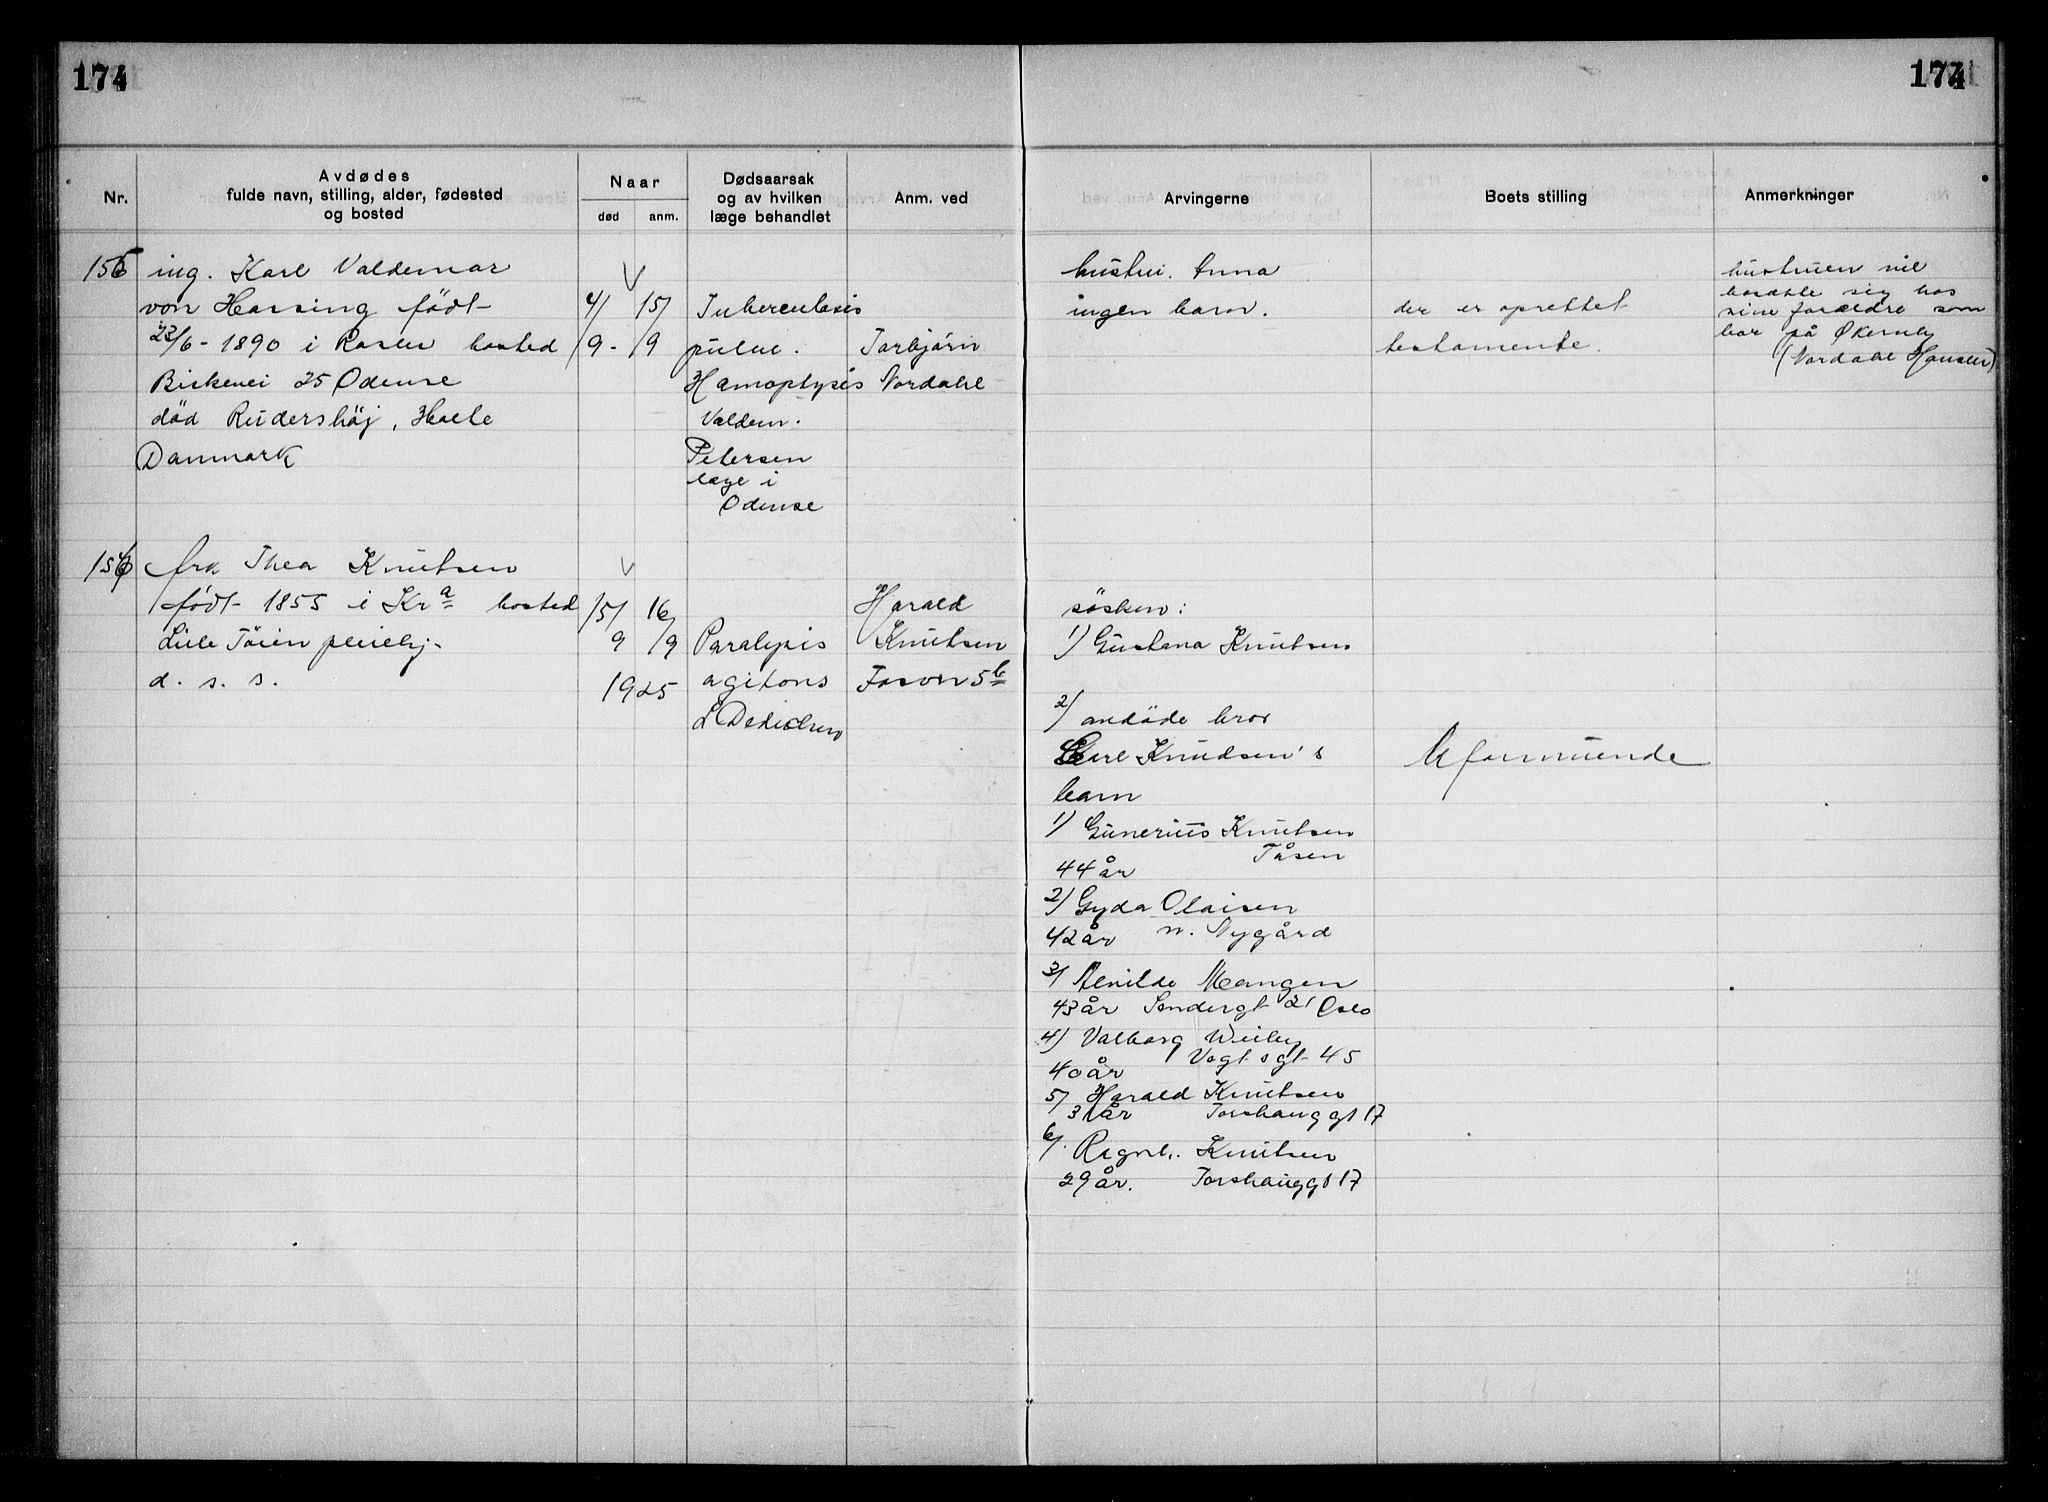 174
174
Nr.
Avdødes
fulde navn, stilling, alder, fødested
og bosted
Naar
død
anm.
Dødsaarsak
og av hvilken
læge behandlet
Anm. ved
Arvingerne
Boets stilling
Anmerkninger
155
ing. Karl Valdemar
von Hassing født
23/6 - 1890 i bosted
Birkevei 25 Odense
død Rudershøj, Holte
Danmark
4/ 15/
/9 - /9
Tuberculosis
pulm.
Hæmoptysis
Valdem.
Petersen
læge i
Odense
Torbjörn
Nordahl
hustru. Anna
ingen barn.
der er oprettet
testamente.
hustruen vil
bosætte sig hos
sine forældre som
bor på Økernby
(Nordahl Hansen)
156
frk Thea Knutsen
født 1855 i Kra bosted
Lille Töien pleiehj.
d. s. s.
15/ 16
9 /9
1925
Paralysis
agitans
L Dedichen
Harald
Knutsen
5b
søsken:
1) Gustava Knutsen
2) avdöde bror
Carl Knudsen's
barn
1) Gunerius Knutsen
Tåsen
44 år
2) Gyda Olaisen
n. Nygård
42 år
3) Alvilde Mangen
43 år Søndergt 21 Oslo
4) Valborg Weiby
Vogtsgt 45
40 år
5) Harald Knutsen
31 år Torshauggt 17
6) Ragnh. Knutsen
29 år. Torshauggt 17
Uformuende